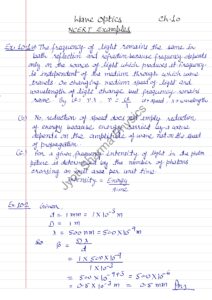 Wave Optics Ch-10
NCERT Examples
Ex 10.1 (a) The frequency of light remains the same in
both reflection and refraction because frequency depends
only on the source of light which produces it frequency
is independent of the medium through which wave
travels. On changing medium speed of light and
wavelength of light change but frequency remains
same
(b) No, reduction of speed does not imply reduction
of energy because energy carried by a wave
depends on the amplitude of wave not on the speed
of propagation.
(c) For a given frequency intensity of light in the photon
picture is determined by the number of photons
crossing an unit area per unit time
Intensity = Energy
time
Ex 10.2 Given
d = 1 mm = 1 × 10⁻³ m
D = 1 m
λ = 500 nm = 500 × 10⁻⁹ m
So β = Dλ
d
= 1 × 500 × 10⁻⁹
1 × 10⁻³
= 500 × 10⁻⁹⁺³ = 500 × 10⁻⁶
= 0.5 × 10⁻³ m = 0.5 mm Ans